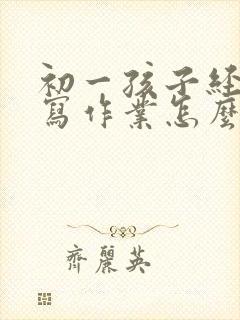 初一孩子经
寫作業怎麼
齊麗英